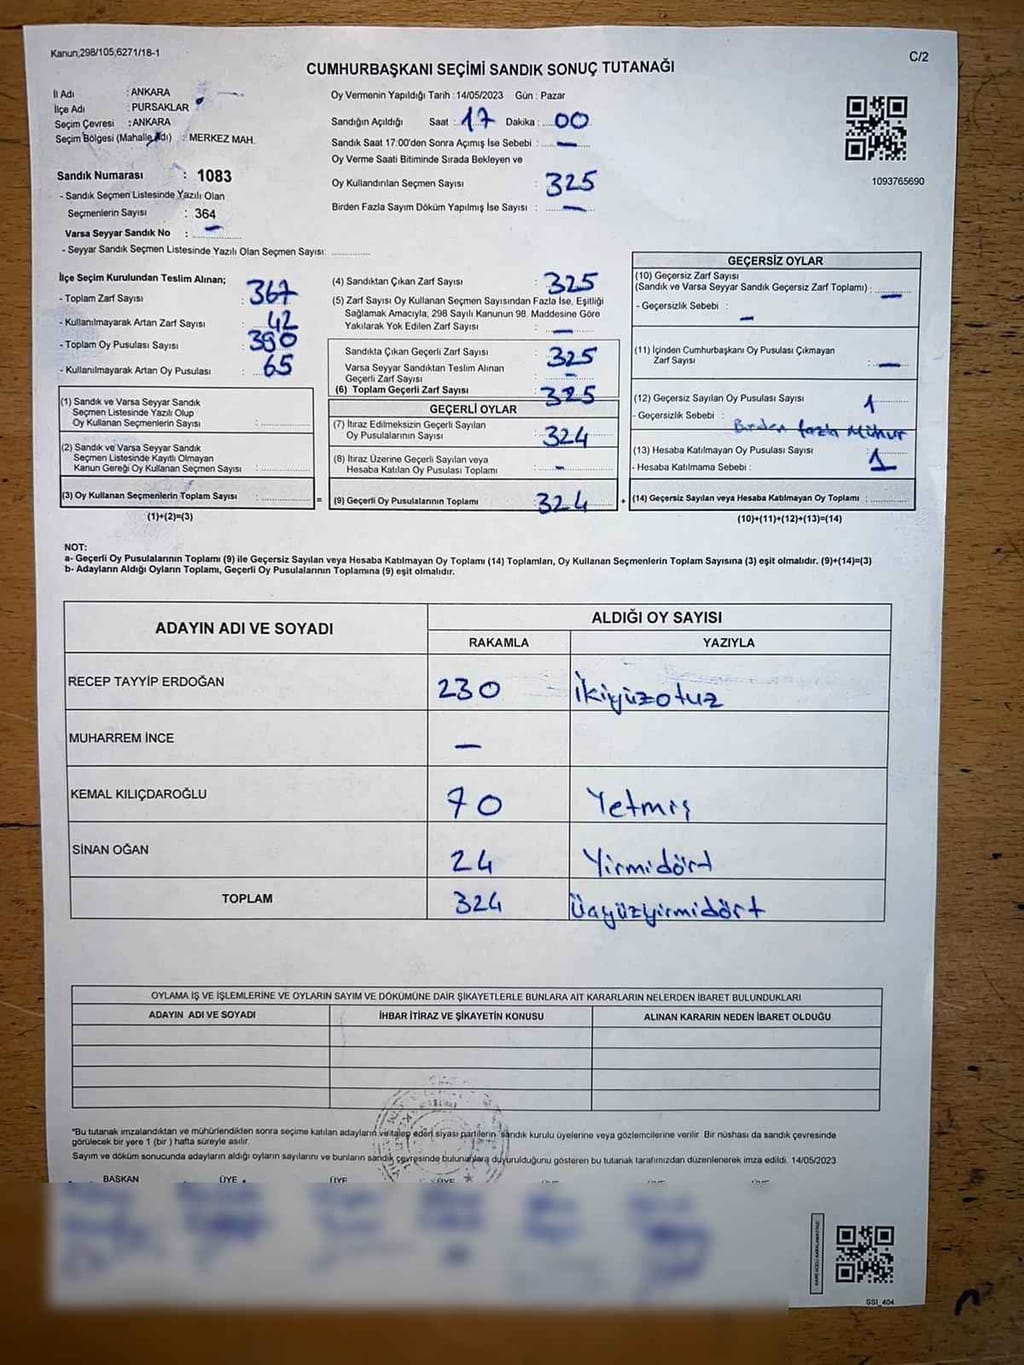 Kanun,298/105,6271/18-1
C/2
CUMHURBAŞKANI SEÇİMİ SANDIK SONUÇ TUTANAĞI
İl Adı : ANKARA
İlçe Adı : PURSAKLAR
Seçim Çevresi : ANKARA
Seçim Bölgesi (Mahalle Adı) : MERKEZ MAH.
Sandık Numarası : 1083
- Sandık Seçmen Listesinde Yazılı Olan
Seçmenlerin Sayısı : 364
Varsa Seyyar Sandık No : —
- Seyyar Sandık Seçmen Listesinde Yazılı Olan Seçmen Sayısı:
Oy Vermenin Yapıldığı Tarih : 14/05/2023 Gün : Pazar
Sandığın Açıldığı Saat : 17 Dakika : 00
Sandık Saat 17:00'den Sonra Açımış İse Sebebi : —
Oy Verme Saati Bitiminde Sırada Bekleyen ve
Oy Kullandırılan Seçmen Sayısı : 325
Birden Fazla Sayım Döküm Yapılmış İse Sayısı : —
1093765690
İlçe Seçim Kurulundan Teslim Alınan;
- Toplam Zarf Sayısı : 367
- Kullanılmayarak Artan Zarf Sayısı : 42
- Toplam Oy Pusulası Sayısı : 390
- Kullanılmayarak Artan Oy Pusulası : 65
(1) Sandık ve Varsa Seyyar Sandık
Seçmen Listesinde Yazılı Olup
Oy Kullanan Seçmenlerin Sayısı :
(2) Sandık ve Varsa Seyyar Sandık
Seçmen Listesinde Kayıtlı Olmayan
Kanun Gereği Oy Kullanan Seçmen Sayısı :
(3) Oy Kullanan Seçmenlerin Toplam Sayısı :
(1)+(2)=(3)
=
(4) Sandıktan Çıkan Zarf Sayısı : 325
(5) Zarf Sayısı Oy Kullanan Seçmen Sayısından Fazla İse, Eşitliği
Sağlamak Amacıyla; 298 Sayılı Kanunun 98. Maddesine Göre
Yakılarak Yok Edilen Zarf Sayısı : —
Sandıkta Çıkan Geçerli Zarf Sayısı : 325
Varsa Seyyar Sandıktan Teslim Alınan
Geçerli Zarf Sayısı : —
(6) Toplam Geçerli Zarf Sayısı : 325
GEÇERLİ OYLAR
(7) İtiraz Edilmeksizin Geçerli Sayılan
Oy Pusulalarının Sayısı : 324
(8) İtiraz Üzerine Geçerli Sayılan veya
Hesaba Katılan Oy Pusulası Toplamı : -
(9) Geçerli Oy Pusulalarının Toplamı : 324
+
GEÇERSİZ OYLAR
(10) Geçersiz Zarf Sayısı
(Sandık ve Varsa Seyyar Sandık Geçersiz Zarf Toplamı) : —
- Geçersizlik Sebebi : —
(11) İçinden Cumhurbaşkanı Oy Pusulası Çıkmayan
Zarf Sayısı : —
(12) Geçersiz Sayılan Oy Pusulası Sayısı : 1
- Geçersizlik Sebebi : Birden fazla Mühür
(13) Hesaba Katılmayan Oy Pusulası Sayısı : 1
- Hesaba Katılmama Sebebi :
(14) Geçersiz Sayılan veya Hesaba Katılmayan Oy Toplamı :
(10)+(11)+(12)+(13)=(14)
NOT:
a- Geçerli Oy Pusulalarının Toplamı (9) ile Geçersiz Sayılan veya Hesaba Katılmayan Oy Toplamı (14) Toplamları, Oy Kullanan Seçmenlerin Toplam Sayısına (3) eşit olmalıdır. (9)+(14)=(3)
b- Adayların Aldığı Oyların Toplamı, Geçerli Oy Pusulalarının Toplamına (9) eşit olmalıdır.
ADAYIN ADI VE SOYADI
ALDIĞI OY SAYISI
RAKAMLA YAZIYLA
RECEP TAYYİP ERDOĞAN 230 İkiyüzotuz
MUHARREM İNCE —
KEMAL KILIÇDAROĞLU 70 Yetmiş
SİNAN OĞAN 24 Yirmidört
TOPLAM 324 Üçyüzyirmidört
OYLAMA İŞ VE İŞLEMLERİNE VE OYLARIN SAYIM VE DÖKÜMÜNE DAİR ŞİKAYETLERLE BUNLARA AİT KARARLARIN NELERDEN İBARET BULUNDUKLARI
ADAYIN ADI VE SOYADI İHBAR İTİRAZ VE ŞİKAYETİN KONUSU ALINAN KARARIN NEDEN İBARET OLDUĞU
*Bu tutanak imzalandıktan ve mühürlendikten sonra seçime katılan adayların ve talep eden siyasi partilerin sandık kurulu üyelerine veya gözlemcilerine verilir. Bir nüshası da sandık çevresinde
görülecek bir yere 1 (bir ) hafta süreyle asılır.
Sayım ve döküm sonucunda adayların aldığı oyların sayılarını ve bunların sandık çevresinde bulunanlara duyurulduğunu gösteren bu tutanak tarafımızdan düzenlenerek imza edildi. 14/05/2023
BAŞKAN ÜYE ÜYE ÜYE
SSI_404